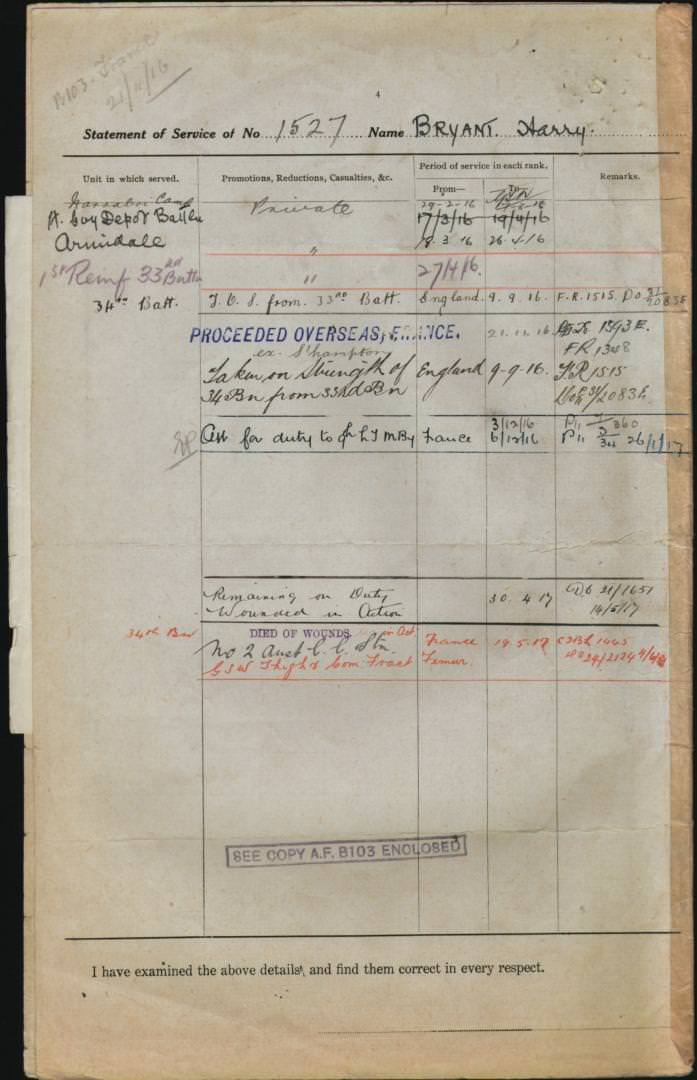 B103. France
21/11/16
4
Statement of Service of No. 1527 Name BRYANT. Harry.
Unit in which served. Promotions, Reductions, Casualties, &c. Period of service in each rank. Remarks.
From— To—
Camp Private 29-2-16
A. Coy Depot Battn 17/3/16 19/4/16
Armidale 18 3 16 26.4.16
"
1st Reinf 33rd Battn " 27/4/16.
34th Batt. T.O.S. from 33rd Batt. England. 9.9.16. F.R. 1515. Do 31/2083E
PROCEEDED OVERSEAS, FRANCE. 21.11.16 1393E.
ex. S'hampton FR 1348
Taken on Strength of England 9-9-16. F.R 1515
34 Bn from 33rd Bn 31/2083E
3/12/16
Att for duty to L T M By France 6/12/16 26/1/17
Remaining on Duty 30.4.17 DO 31/1651
Wounded in Action 14/5/17
34th Bn DIED OF WOUNDS France 19.5.17
No 2 Aust C. C. Stn.
G S W Thigh & Com Fract Femur.
SEE COPY A.F. B103 ENCLOSED
I have examined the above details, and find them correct in every respect.